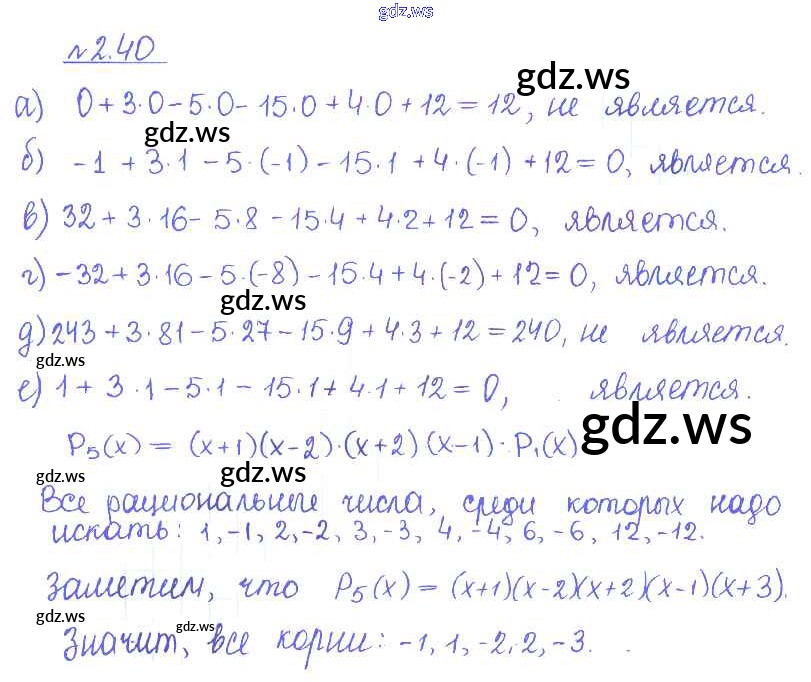 gdz.ws
№2.40
gdz.ws
а) 0+3·0-5·0-15·0+4·0+12=12, не является.
gdz.ws
б) -1+3·1-5·(-1)-15·1+4·(-1)+12=0, является.
в) 32+3·16-5·8-15·4+4·2+12=0, является.
г) -32+3·16-5·(-8)-15·4+4·(-2)+12=0, является.
gdz.ws
д) 243+3·81-5·27-15·9+4·3+12=240, не является.
gdz.ws
е) 1+3·1-5·1-15·1+4·1+12=0, является.
gdz.ws
P₅(x)=(x+1)(x-2)·(x+2)(x-1)·P₁(x)
gdz.ws gdz.ws
Все рациональные числа, среди которых надо
искать: 1,-1, 2,-2, 3,-3, 4,-4, 6,-6, 12,-12.
Заметим, что P₅(x)=(x+1)(x-2)(x+2)(x-1)(x+3).
gdz.ws gdz.ws
Значит, все корни: -1, 1, -2, 2, -3.